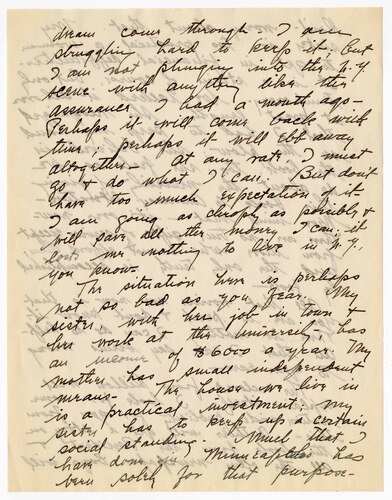 dream come through. I am
struggling hard to keep it, but
I am not plunging into the N.Y
scene with anything like the
assurance I had a month ago -
Perhaps it will come back with
time, perhaps it will ebb away
altogether - At any rate, I must
go & do what I can. But don't
have too much expectation of it.
I am going as cheaply as possible &
will save all the money I can; it
costs me nothing to live in N.Y.
you know -
The situation here is perhaps
not so bad as you fear. My
sister, with her job in town &
her work at the University, has
an income of $6000 a year. My
mother has small independent
means - The house we live in
is a practical investment; my
sister has to keep up a certain
social standing. Much that I
have done in Minneapolis has
been solely for that purpose -